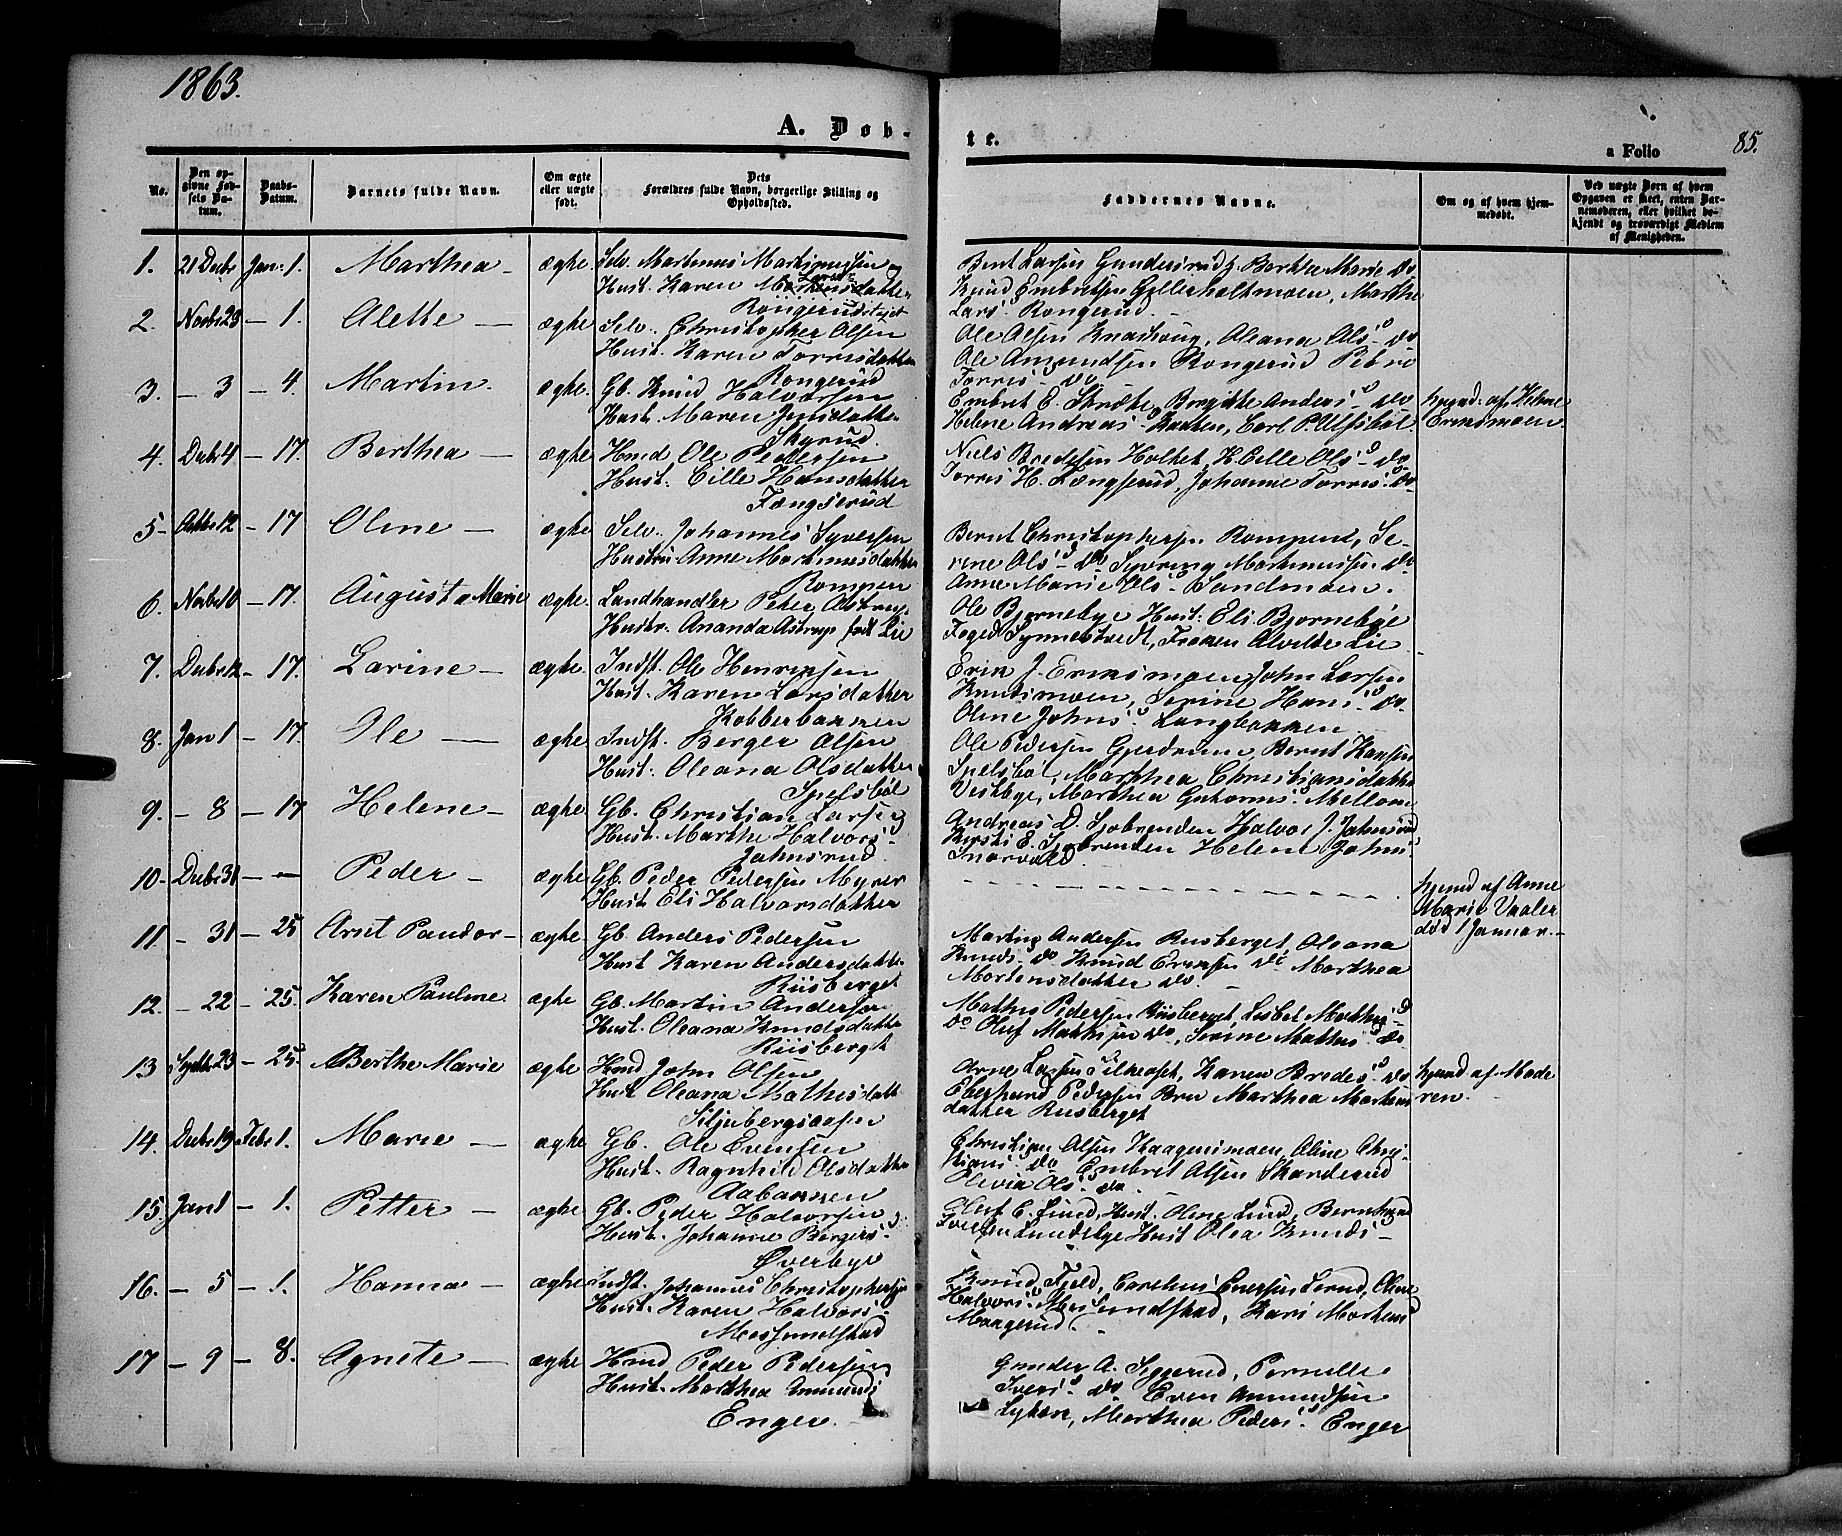 1863.
A. Døb-
te.
a Folio
85.
No.
Den op-
givne Fød-
sels Da-
tum.
Daabs-
Datum.
Barnets fulde Navn.
Om ægte
eller uægte
født.
Dets
Forældres fulde Navn, borgerlige Stilling og
Opholdssted.
Faddernes Navne.
Om og af hvem hjem-
medøbt.
Ved uægte Børn af hvem
Opgaven er skeet, enten Bar-
nemoderen, eller hvilket be-
kjendt og troværdigt Medlem
af Menigheden.
1. 21 Decbr Jan. 1. Marthea - ægte Selv. Martinus
Hust. Karen
Bent Larsen Berthe Marie do
Knud Embretsen Gyllerholtmoen, Marthe
Lars Rongerud.
2. Novbr 23 - 1. Alette - ægte Selv. Christopher Olsen
Hust. Karen Torrisdatter
Rongerud
Ole Olsen Oleana Ols do
Ole Amundsen Rongerud
Torris do
3. - 3 - 4 Martin. ægte. Gb. Knud Halvorsen
Hust. Maren Jensdatter
Skyrud.
Embret E. Birgitte Anders do
Helene Andreas
hjemd. af Helene
Ermsmoen
4. Decbr 4 - 17. Berthea - ægte Hmd Ole Pedersen
Hust. Cille Hansdatter
Fængserud
Niels Holket, K. Cille Ols do
Torris H. Fængsrud, Johanne Torris do
5 - Octbr 12 - 17 Oline - ægte Selv. Johannes Syversen
Hustru Anne Martinusdatter
Rompen
Bernt Christophersen Se-
rine Ols do Syvring Martinussen do
Anne Marie Ols Sandmoen.
6. Novbr 10 - 17. Augusta Marie ægte. Landhandler Peter Astrup
Hustr. Ananda Astrup født Lie
Ole Bjørnebye Hust. Eli Bjørnebye
Foged Synnestvedt, Frøken Alvilde Lie
7. Decbr 12 - 17. Larine - ægte. Indst. Ole Henriksen
Hust. Karen Larsdatter
Kobberbakken
Erik J. Ermsmoen John Larsen
Knudsmoen, Serine Hans do
Oline Johns Langbakken
8. Jan 1 - 17. Ole - ægte. Indst. Berger Olsen
Hust. Oleana Olsdatter
Spelsbøl
Ole Pedersen Gjerdrum, Bernt Hansen
Spelsbøl, Marthea Christiansdatter
Vestbye, Marthea Guttorms Mellom
9. - 8 - 17 Helene - ægte. Gb. Christian Larsen
Hust. Marthe Halvors
Johnsrud
Andreas D. Sjøbrenden Halvor J. Johnsrud
Kirsti E. Sjøbrenden Helene Johns
10. Decbr 31 - - Peder - ægte Gb. Peder Pedersen Myrer
Hust Eli Halvorsdatter
hjemd af Anne
Marie Vaaler
død 1 Januar.
11 - 31 - 25 Arnt Pandor - ægte. Gb. Anders Pedersen
Hust Karen Andersdatter
Riisberget
Martin Andersen Riisberget, Oleana
Knuds do Knud Eriksen do Marthea
Mortensdatter do.
12. - 22 - 25. Karen Pauline ægte Gb. Martin Andersen
Hust. Oleana Knudsdatter
Riisberget
Mathis Pedersen Riisberget, Lisbet Mathis
do Oluf Mathisen do, Serine Mathis do
13 Septbr 23 - 25. Berthe Marie ægte Hmd John Olsen
Hust Oleana Mathisdatt
Siljubergsaasen
Arne Larsen Karen Bredes do
Pedersen Marthea Martins
datter Riisberget
hjemd af Mode
ren.
14. Decbr 19 Febr 1. Marie - ægte Gb. Ole Evensen
Hust. Ragnhild Olsdatter
Aabakken
Christian Olsen Haagensmoen, Oline Chri-
stians do Embret Olsen Skanderud
Olivia Ols do
15 Jan 1 - 1. Petter - ægte Gb. Peder Halvorsen
Hust. Johanne Bergers
Øverbye
Oluf E. Lund, Hust. Oline Lund,
Lundebye Hust Olea Knuds
16. - 5 - 1. Hanna - ægte Indst. Johannes Christophersen
Hust. Karen Halvors
Massmundstad
Knud Fjeld, Carelius Oline
Halvors Kari Martins
Maagerud
17 - 9 - 8. Agnete - ægte Hmd Peder Pedersen
Hust. Marthea Amunds
Enger.
Gunder A. Siggerud, Pernelle
Ivers do Even Amundsen
Marthea Peders Enger